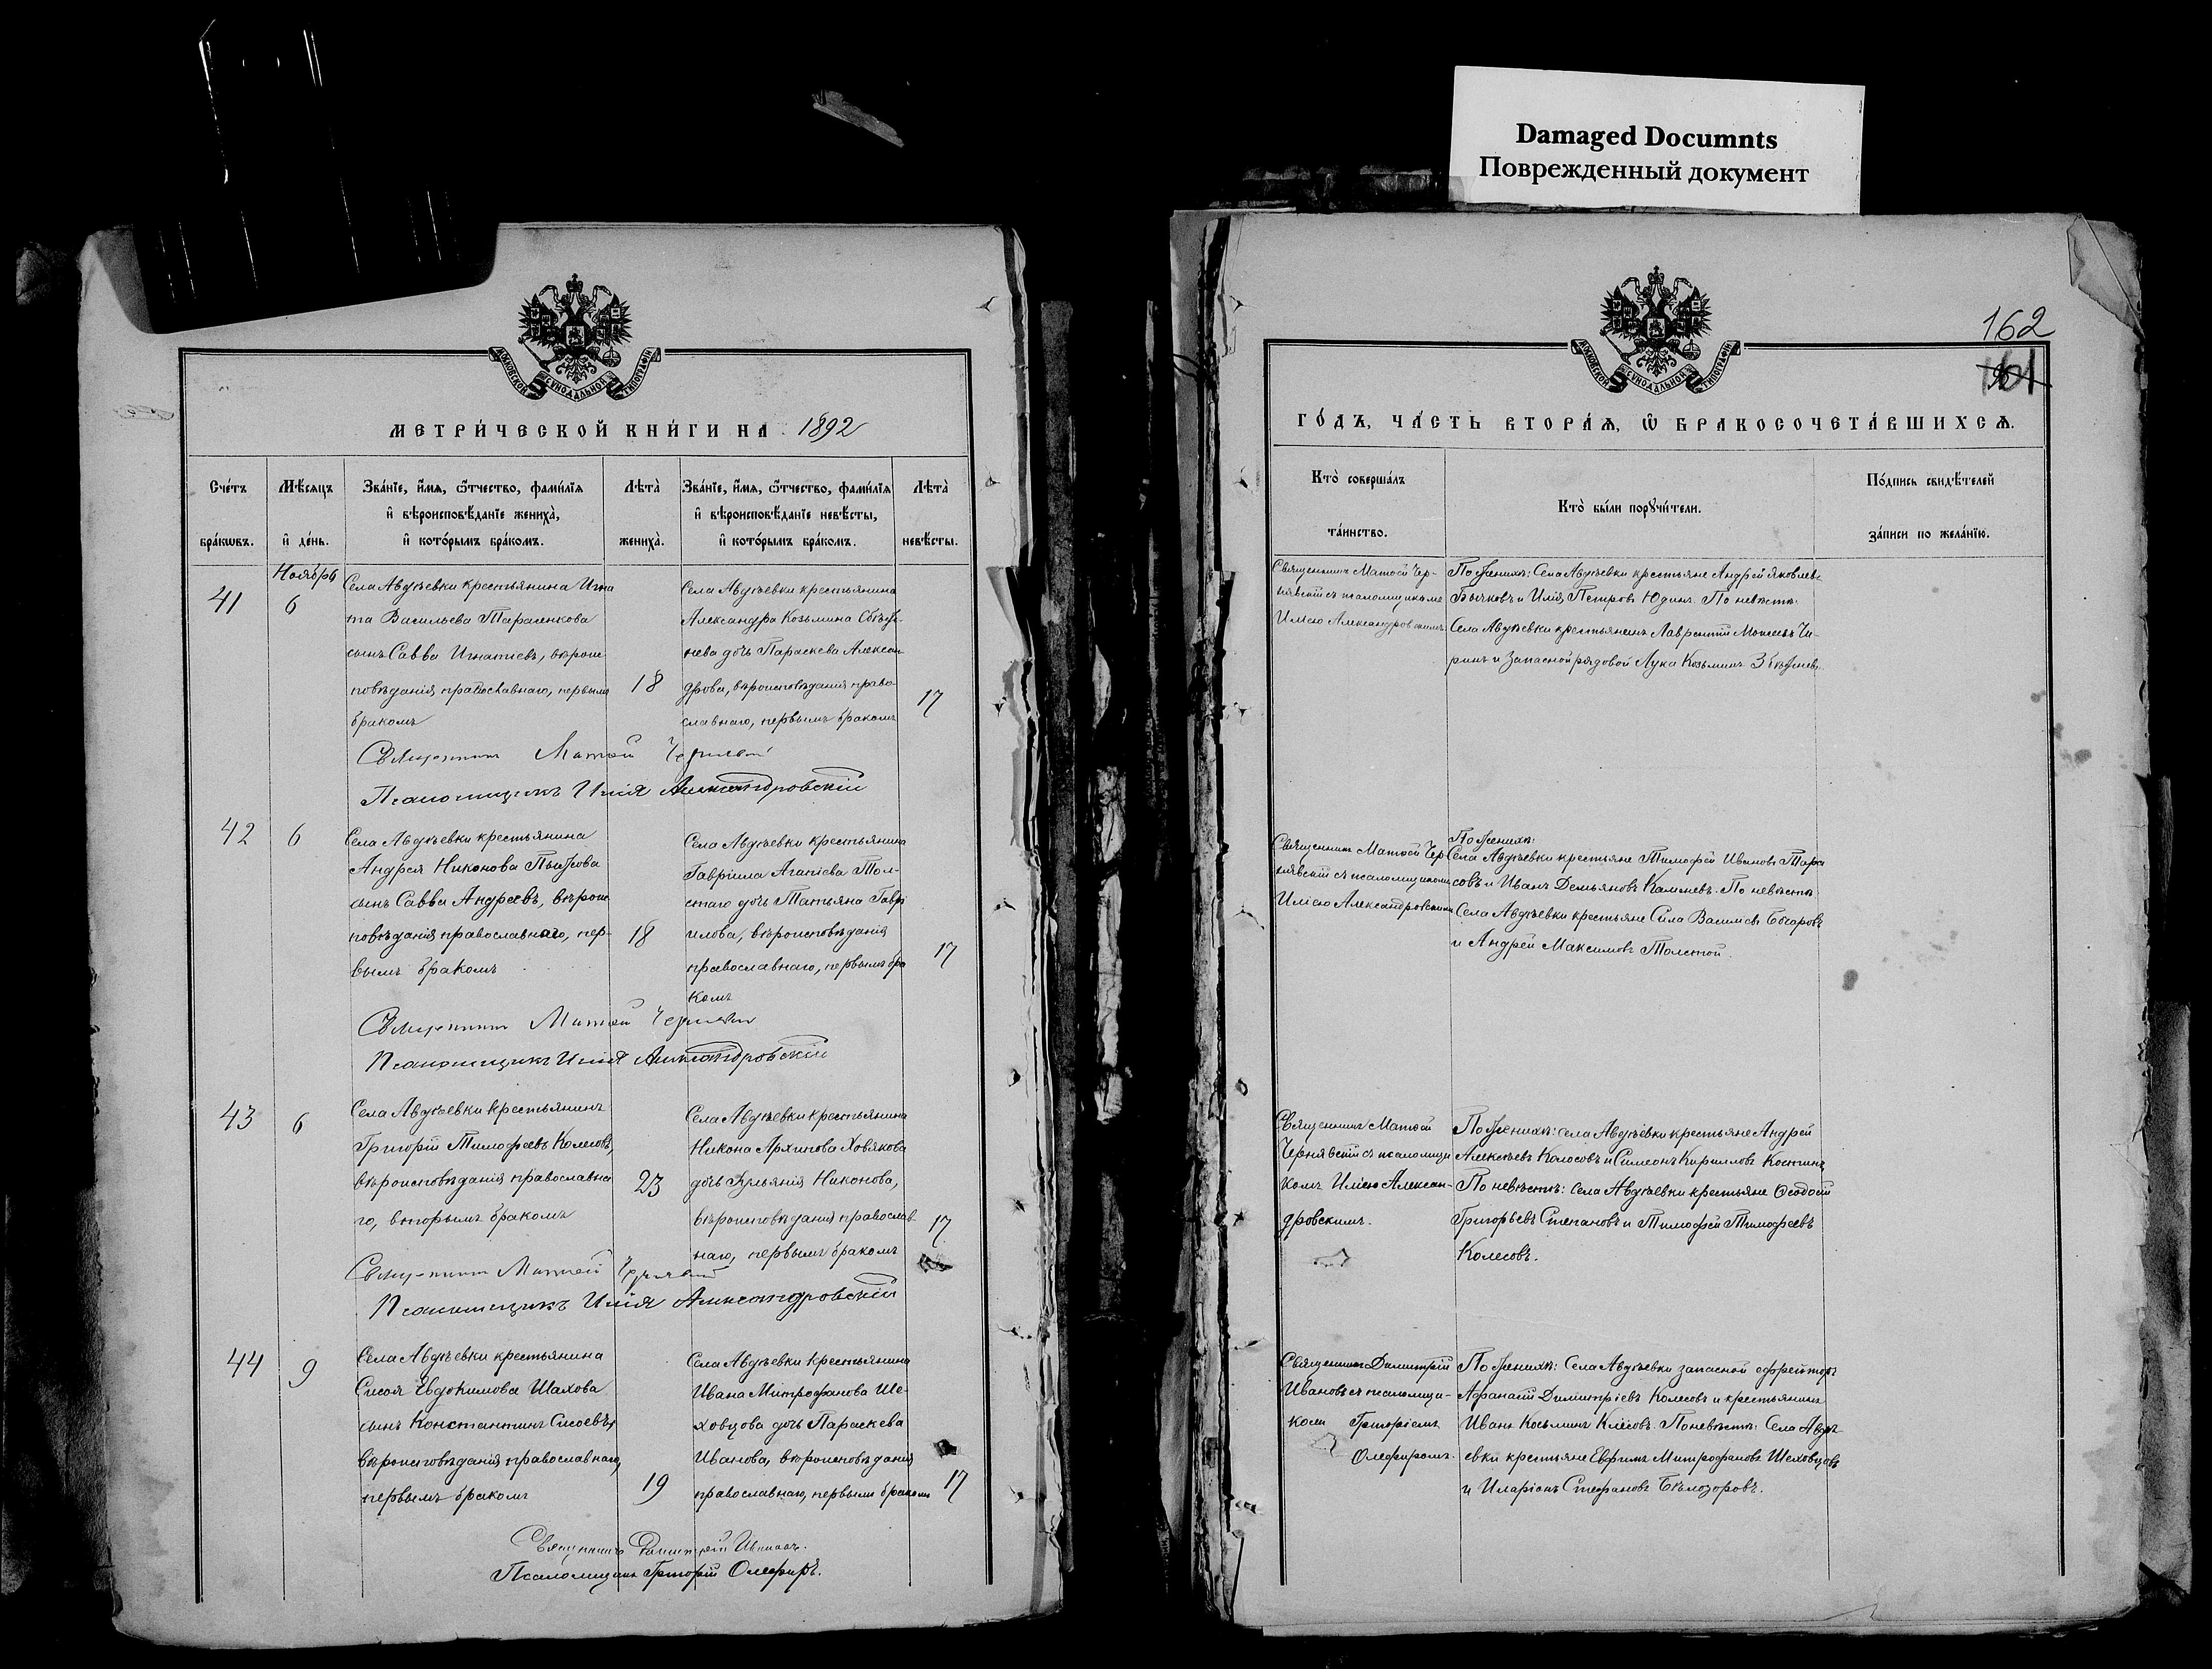 Damaged Documnts
Поврежденный документ
МОСКОВСКОЙ СѴНОДАЛЬНОЙ ТИПОГРАФІИ
МЕТРИ́ЧЕСКОЙ КНИ́ГИ НА 1892
Сче́тъ бра́кѡвъ.
Мѣ́сяцъ и҆ де́нь.
Зва́нїе, и҆́мѧ, ѻ҆́тчество, фами́лїѧ
и҆ вѣроисповѣ́данїе жениха̀,
и҆ кото́рымъ бра́комъ.
Лѣта̀ жениха̀.
Зва́нїе, и҆́мѧ, ѻ҆́тчество, фами́лїѧ
и҆ вѣроисповѣ́данїе невѣ́сты,
и҆ кото́рымъ бра́комъ.
Лѣта̀ невѣ́сты.
41
Ноябрь
6
Села Авдѣевки крестьянина Игна
та Васильева Тараненкова
сынъ Савва Игнатіевъ, вѣрои
повѣданія православнаго, первымъ
бракомъ
18
Села Авдѣевки крестьянина
Александра Козьмина
нева дочь Параскева Алексан
дрова, вѣроисповѣданія право
славнаго, первымъ бракомъ
17
Священникъ Матѳей Чернявскій
Псаломщикъ Илія Александровскій
42
6
Села Авдѣевки крестьянина
Андрея Никонова
сынъ Савва Андреевъ, вѣрои
повѣданія православнаго, пер-
вымъ бракомъ
18
Села Авдѣевки крестьянина
Гавріила Агапіева Тол-
стаго дочь Татьяна Гаврі
илова, вѣроисповѣданія
православнаго, первымъ бра
комъ
17
Священникъ Матѳей Чернявскій
Псаломщикъ Илія Александровскій
43
6
Села Авдѣевки крестьянинъ
Григорій Тимофеевъ Колесовъ,
вѣроисповѣданія православна
го, вторымъ бракомъ
23
Села Авдѣевки крестьянина
Никона Архипова Ховякова
дочь Ульянія Никонова,
вѣроисповѣданія православ
наго, первымъ бракомъ
17
Священникъ Матѳей Чернявскій
Псаломщикъ Илія Александровскій
44
9
Села Авдѣевки крестьянина
Сисоя Евдокимова Шахова
сынъ Константинъ Сисоевъ,
вѣроисповѣданія православнаго,
первымъ бракомъ
19
Села Авдѣевки крестьянина
Ивана Митрофанова Ше-
ховцова дочь Параскева
Иванова, вѣроисповѣданія
православнаго, первымъ бракомъ
17
Священникъ Димитрій Ивановъ.
Псаломщикъ Григорій Олефиръ.
162
МОСКОВСКОЙ СѴНОДАЛЬНОЙ ТИПОГРАФІИ
ГО́ДЪ, ЧА́СТЬ ВТОРА́Ѧ, Ѡ҆ БРАКОСОЧЕТА́ВШИХСѦ.
Кто̀ соверша́лъ
та́инство.
Кто̀ бы́ли порꙋчи́тели.
По́дпись свидѣ́телей
за́писи по жела́нїю.
Священникъ Матѳей Чер-
нявскій съ псаломщикомъ
Иліею Александровскимъ.
По женихѣ: Села Авдѣевки крестьяне Андрей Яковлевъ
Бычковъ и Илія Петровъ Юдинъ. По невѣстѣ:
Села Авдѣевки крестьянинъ Лаврентій Моисеевъ Чи-
ринъ и Запасной рядовой Лука Козьминъ
Священникъ Матѳей Чер
нявскій съ псаломщикомъ
Иліею Александровскимъ
По женихѣ:
Села Авдѣевки крестьяне Тимофей Ивановъ Тара
совъ и Иванъ Демьяновъ Камневъ. По невѣстѣ:
Села Авдѣевки крестьяне Сила Василіевъ Бочаровъ
и Андрей Максимовъ Толстой.
Священникъ Матѳей
Чернявскій съ псаломщи
комъ Иліею Алексан-
дровскимъ.
По женихѣ: села Авдѣевки крестьяне Андрей
Алексѣевъ Колосовъ и Симеонъ Кирилловъ Костинъ
По невѣстѣ: села Авдѣевки крестьяне Ѳеодосій
Григорьевъ Степановъ и Тимофей Тимофеевъ
Колесовъ.
Священникъ Димитрій
Ивановъ съ псаломщи-
комъ Григоріемъ
Олефиромъ.
По женихѣ: Села Авдѣевки запасной ефрейторъ
Афанасій Димитріевъ Колесовъ и крестьянинъ
Иванъ Косьминъ Клёсовъ. По невѣстѣ: Села Авдѣ-
евки крестьяне Евфимъ Митрофановъ Шеховцовъ
и Иларіонъ Стефановъ Бѣлозоровъ.